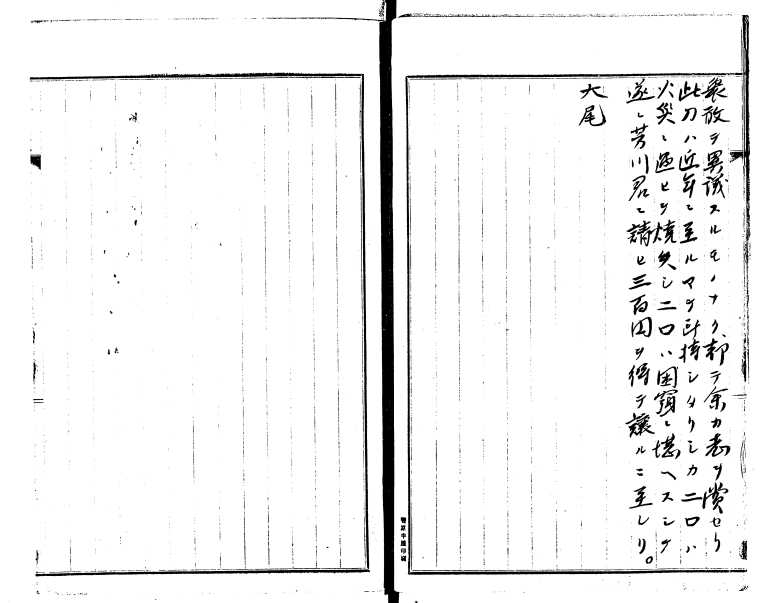 衆敢テ異議スルモノナク、却テ余カ志ヲ賞セリ
此刀ハ近年ニ至ルマテ所持シタリシカ二口ハ
火災ニ遇ヒテ焼失シ二口ハ困窮ニ堪ヘスシテ
遂ニ芳川君ニ請ヒ三百円ヲ得テ譲ルニ至レリ。
大尾